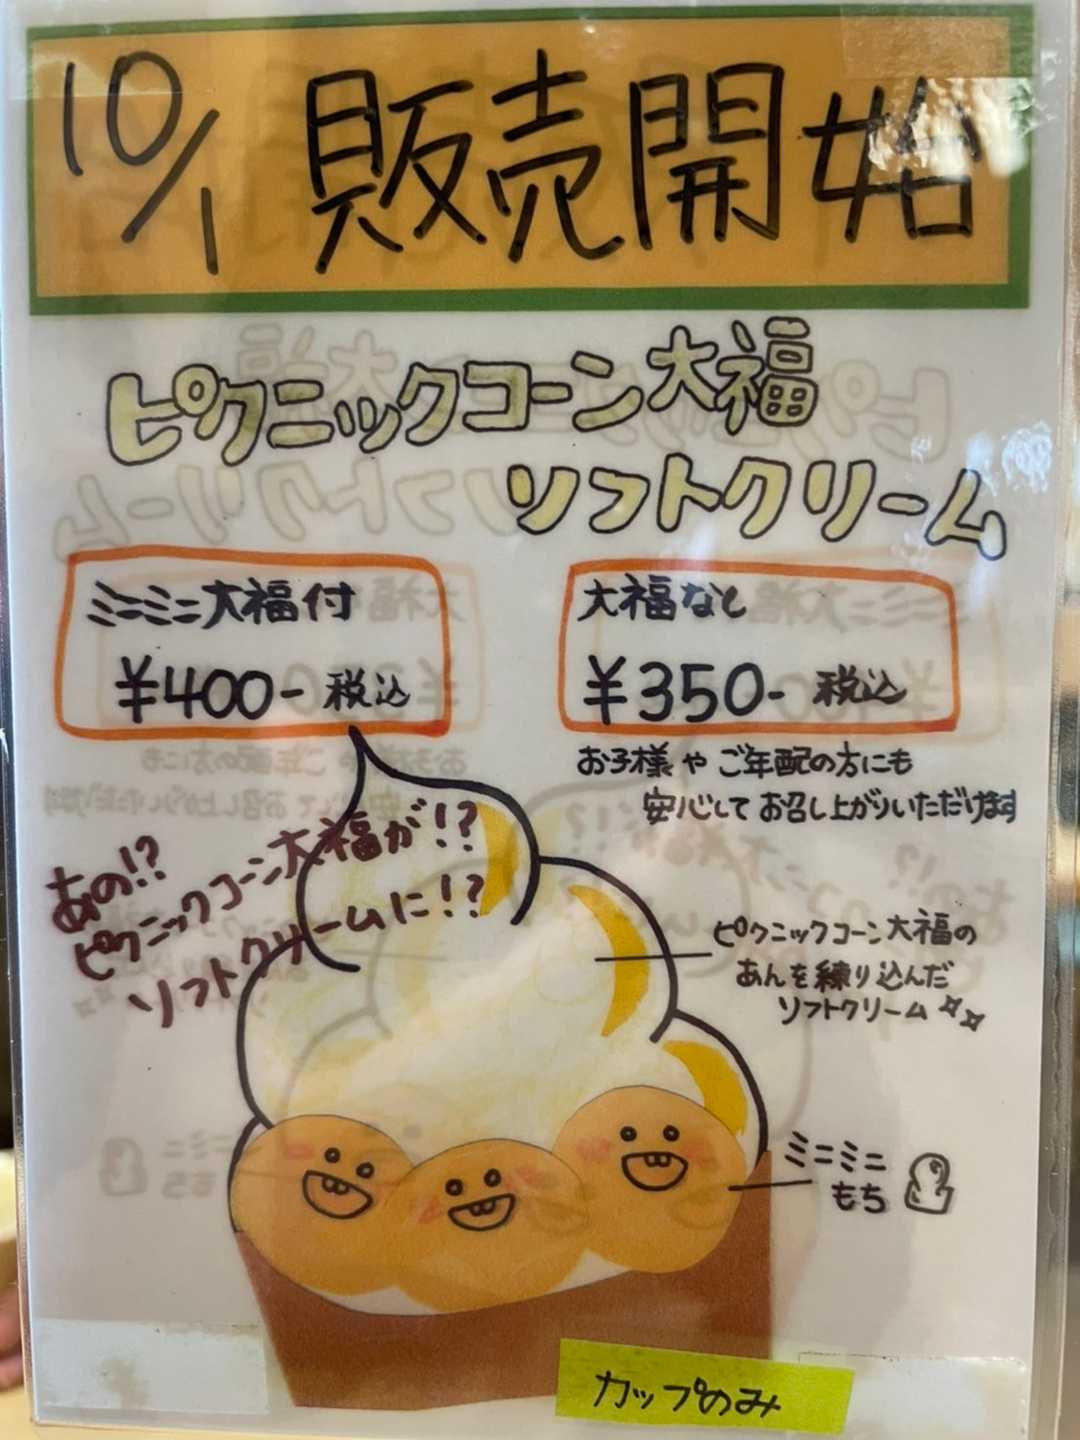 10/1 販売開始
ピクニックコーン大福
ソフトクリーム
ミニミニ大福付
¥400- 税込
大福なし
¥350- 税込
お子様や ご年配の方にも
安心して お召し上がりいただけます
あの!?
ピクニックコーン大福が!?
ソフトクリームに!?
ピクニックコーン大福の
あんを練り込んだ
ソフトクリーム
ミニミニ
もち
カップのみ